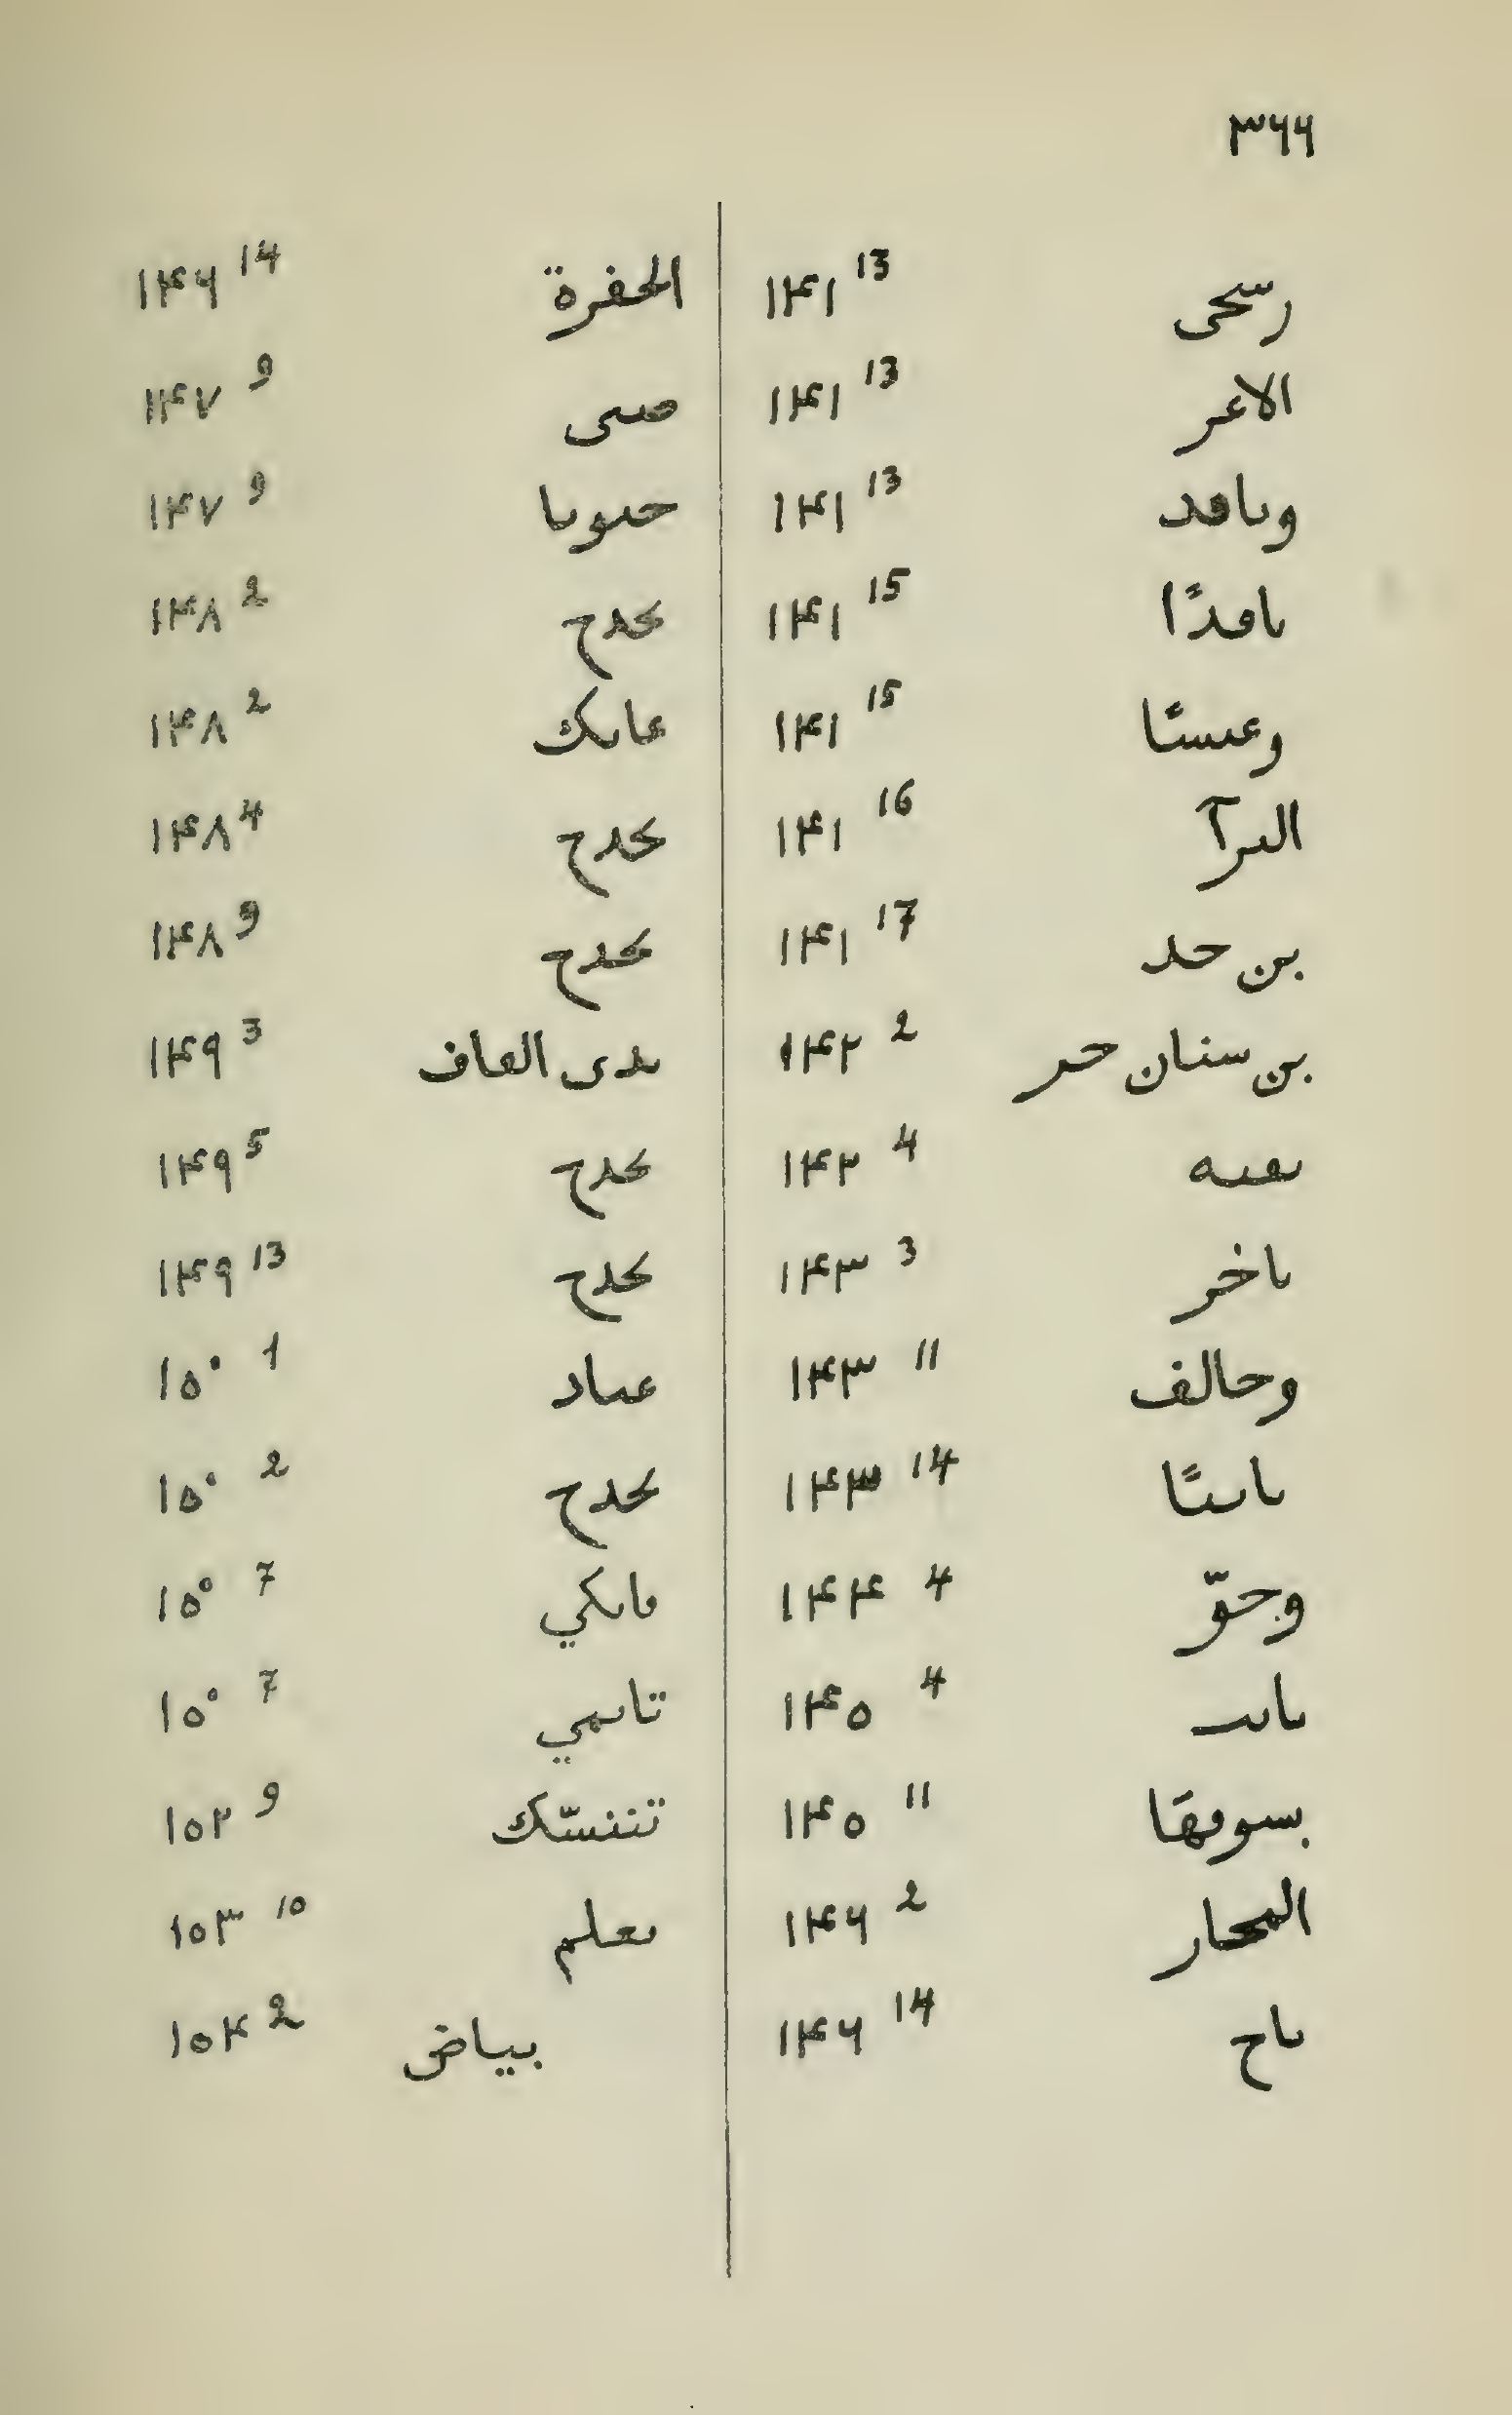 ٣٦٦
رسحى ١٤١ 13
الاعر ١٤١ 13
وىاڡد ١٤١ 13
ىاڡدًا ١٤١ 15
وعىسىًا ١٤١ 15
الىرآ ١٤١ 16
بن حد ١٤١ 17
بن سنان حر ١٤٢ 2
ىعىه ١٤٢ 4
ىاخر ١٤٣ 3
وحالف ١٤٣ 11
ىاىىًا ١٤٣ 14
وحوّ ١٤٤ 4
ىاىٮ ١٤٥ 4
بسوڡهَا ١٤٥ 11
المحار ١٤٦ 2
ىاح ١٤٦ 14
الحفرة ١٤٦ 14
صىى ١٤٧ 9
حىوىا ١٤٧ 9
ىحدح ١٤٨ 2
عاىك ١٤٨ 2
ىحدح ١٤٨ 4
ىحدح ١٤٨ 9
ىدى العاف ١٤٩ 3
ىحدح ١٤٩ 5
ىحدح ١٤٩ 13
عىاد ١٥٠ 1
ىحدح ١٥٠ 2
ماىكي ١٥٠ 7
تاىمي ١٥٠ 7
تننسّك ١٥٢ 9
ىعلم ١٥٣ 10
بياض ١٥٤ 2